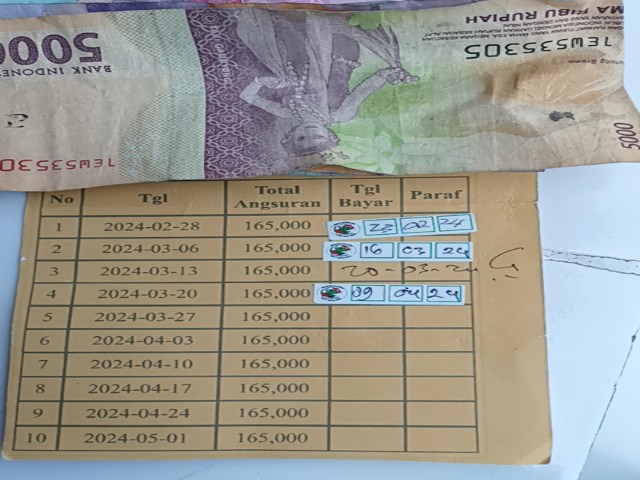 5000
BANK INDONESIA
1EW535305
MA RIBU RUPIAH
1EW535305
5000
No Tgl Total Angsuran Tgl Bayar Paraf
1 2024-02-28 165,000 23 02 24
2 2024-03-06 165,000 16 03 24
3 2024-03-13 165,000 20-03-24
4 2024-03-20 165,000 09 04 24
5 2024-03-27 165,000
6 2024-04-03 165,000
7 2024-04-10 165,000
8 2024-04-17 165,000
9 2024-04-24 165,000
10 2024-05-01 165,000